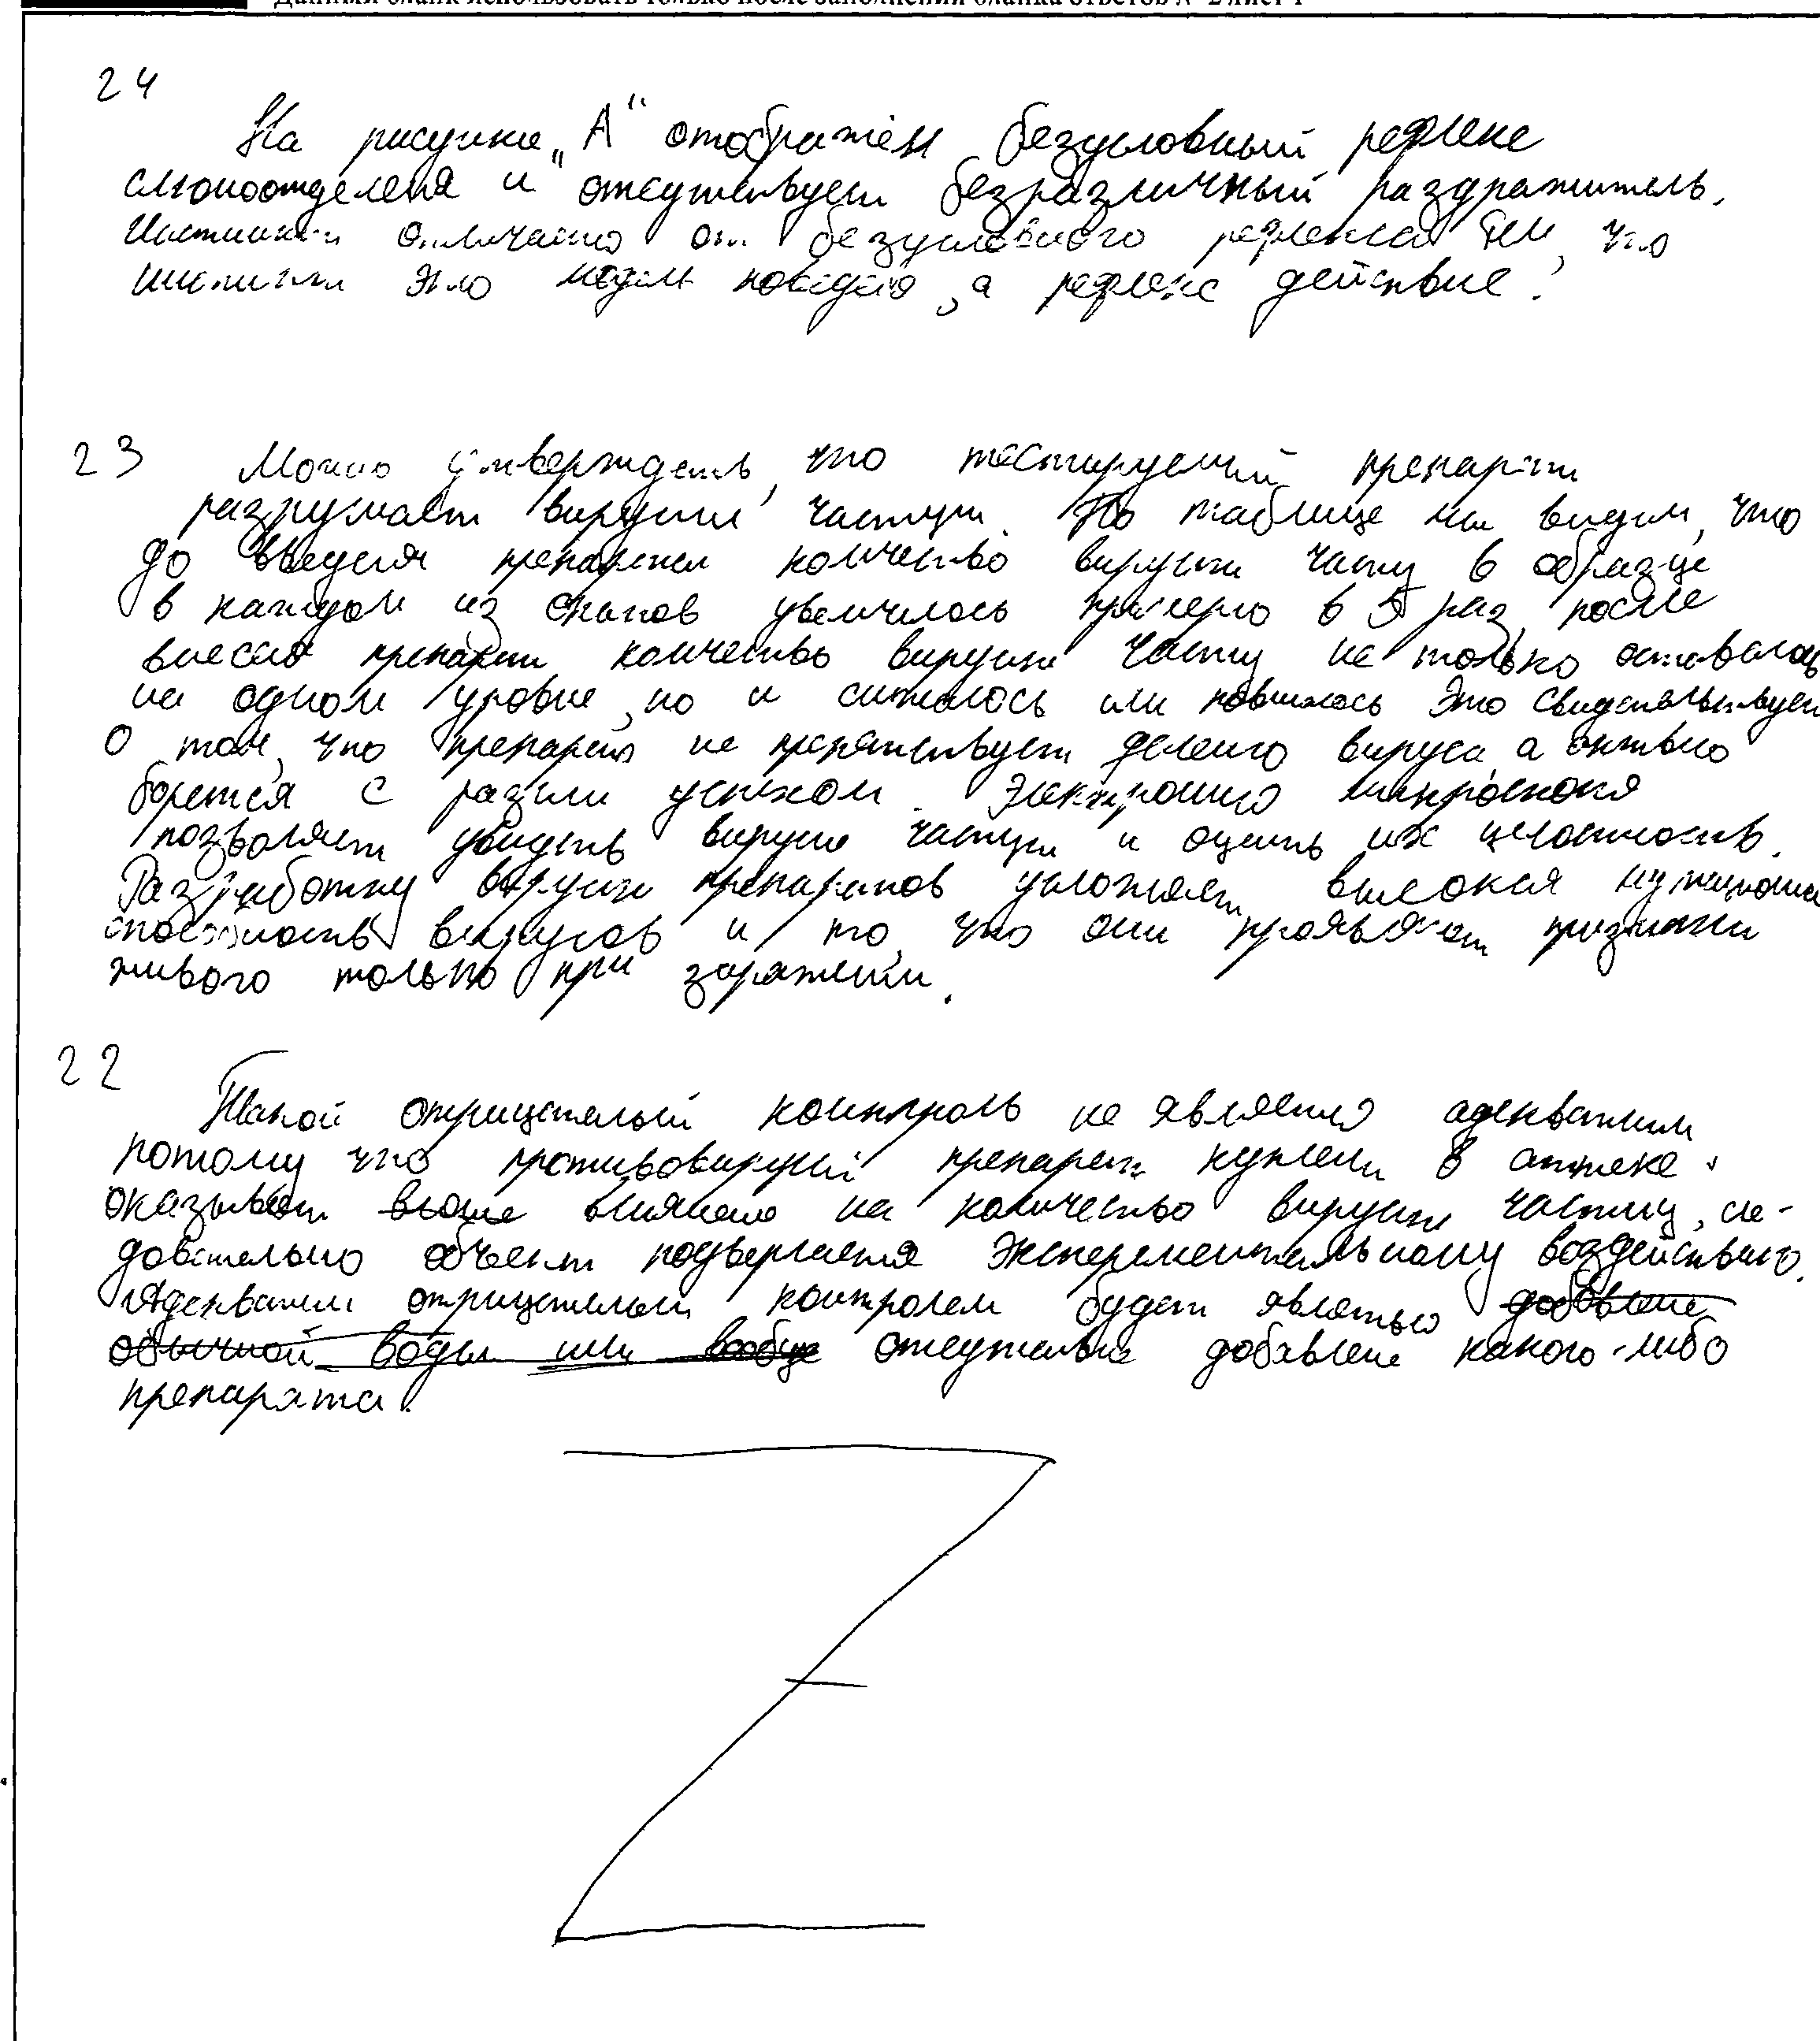 Данный бланк использовать только после заполнения бланка ответов № 2 лист 1
24
На рисунке „А“ отображён безусловный рефлекс
слюноотделения и отсутствует безразличный раздражитель.
Инстинкт отличается от безусловного рефлекса тем, что
инстинкт это модель поведения, а рефлекс действие.
23 Можно утверждать, что тестируемый препарат
разрушает вирусные частицы. По таблице мы видим, что
до введения препарата количество вирусных частиц в образце
в каждом из этапов увеличилось примерно в 5 раз, после
внесения препарата количество вирусных частиц не только оставалось
на одном уровне, но и снижалось или повышалось Это свидетельствует
о том, что препарат не препятствует делению вируса, а активно
борется с разным успехом. Электронная микроскопия
позволяет увидеть вирусные частицы и оценить их целостность.
Разработку вирусных препаратов усложняет высокая мутационная
способность вирусов и то, что они проявляют признаки
живого только при заражении.
22
Такой отрицательный контроль не является адекватным
потому что противовирусный препарат купленный в аптеке
оказывает влияние на количество вирусных частиц, сле-
довательно объект подвергается эксперементальному воздействию.
Адекватным отрицательным контролем будет являться добавление
обычной воды или вообще отсутствие добавление какого-либо
препарата.